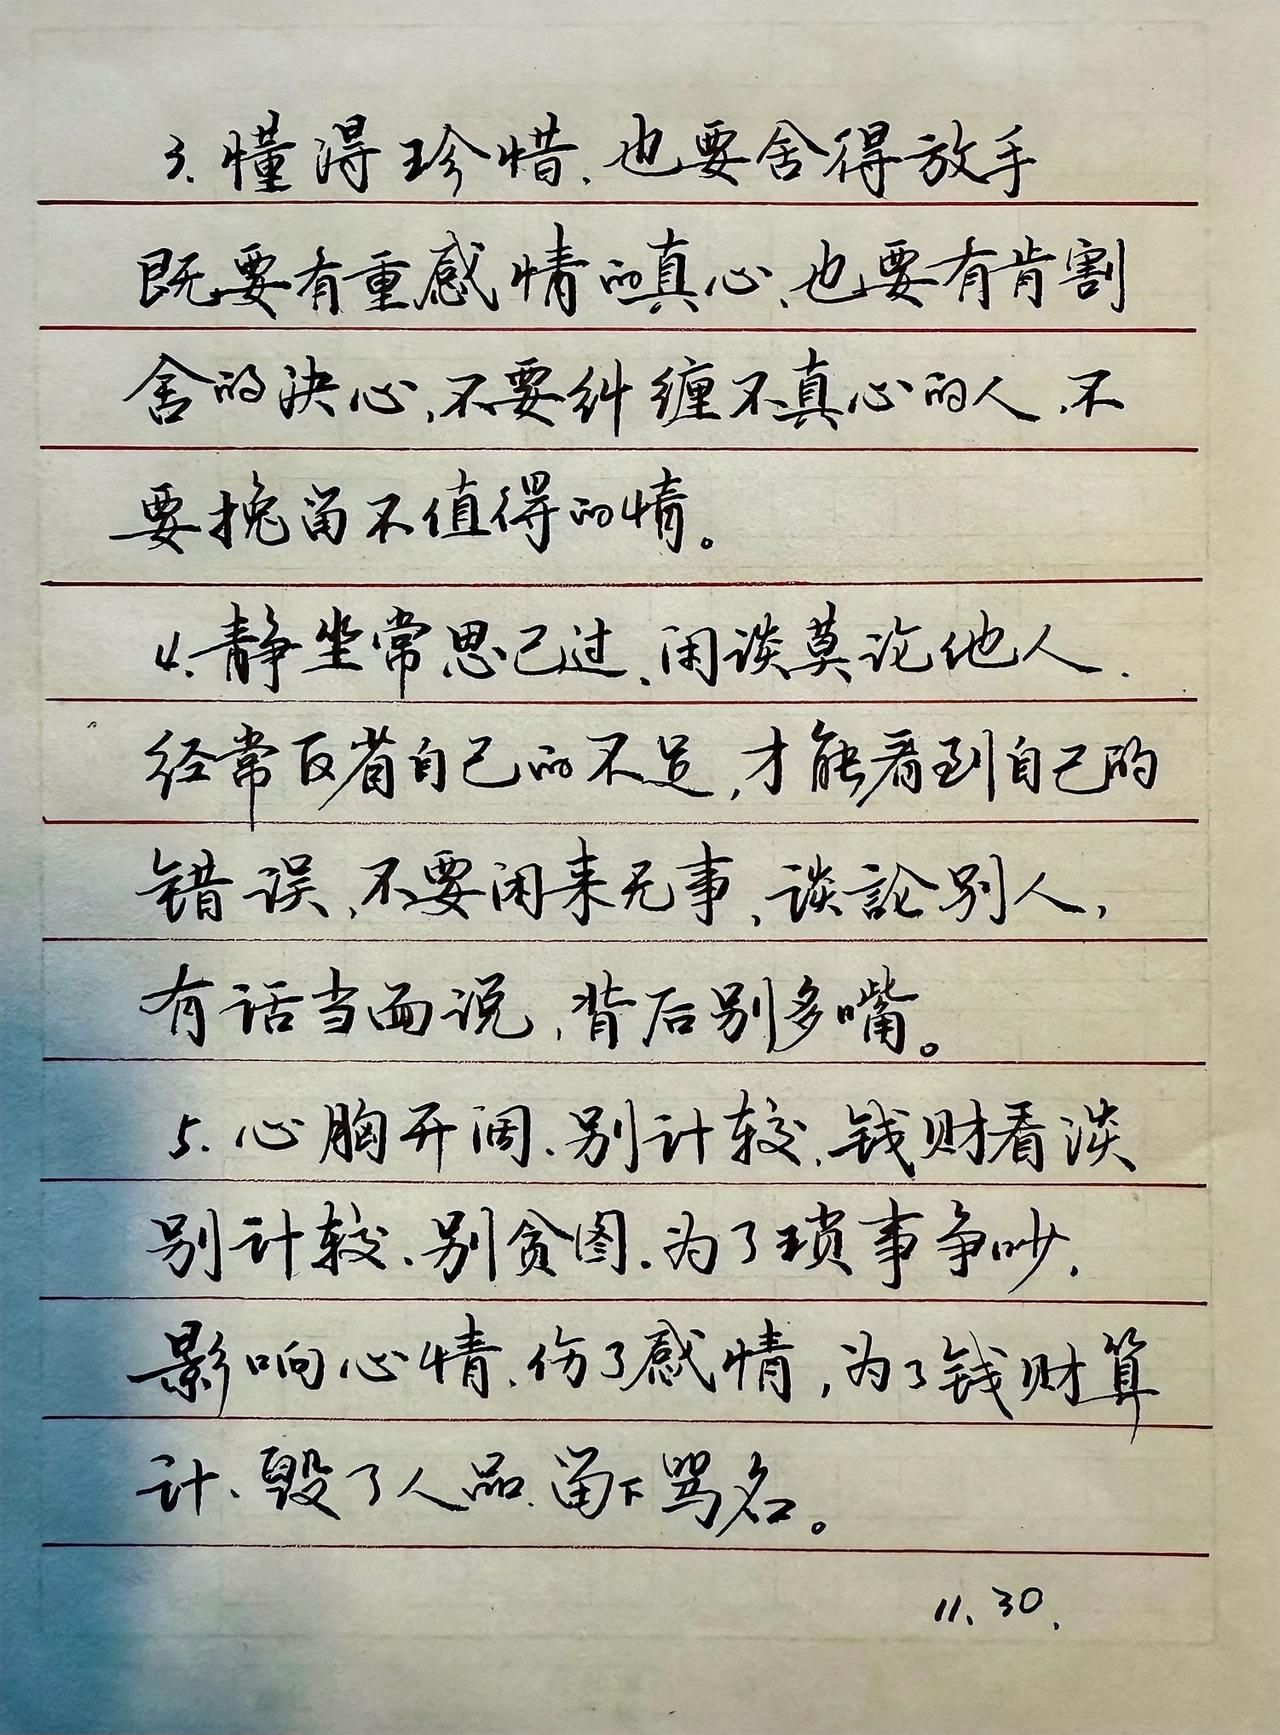 3、懂得珍惜、也要舍得放手
既要有重感情的真心、也要有肯割
舍的决心,不要纠缠不真心的人,不
要挽留不值得的情。
4、静坐常思己过、闲谈莫论他人.
经常反省自己的不足,才能看到自己的
错误、不要闲来无事、谈論别人,
有话当面说,背后别多嘴。
5、心胸开阔、别计较,钱财看淡
别计较、别贪图.为了琐事争吵,
影响心情、伤了感情,为了钱财算
计、毁了人品、留下骂名。
11.30.